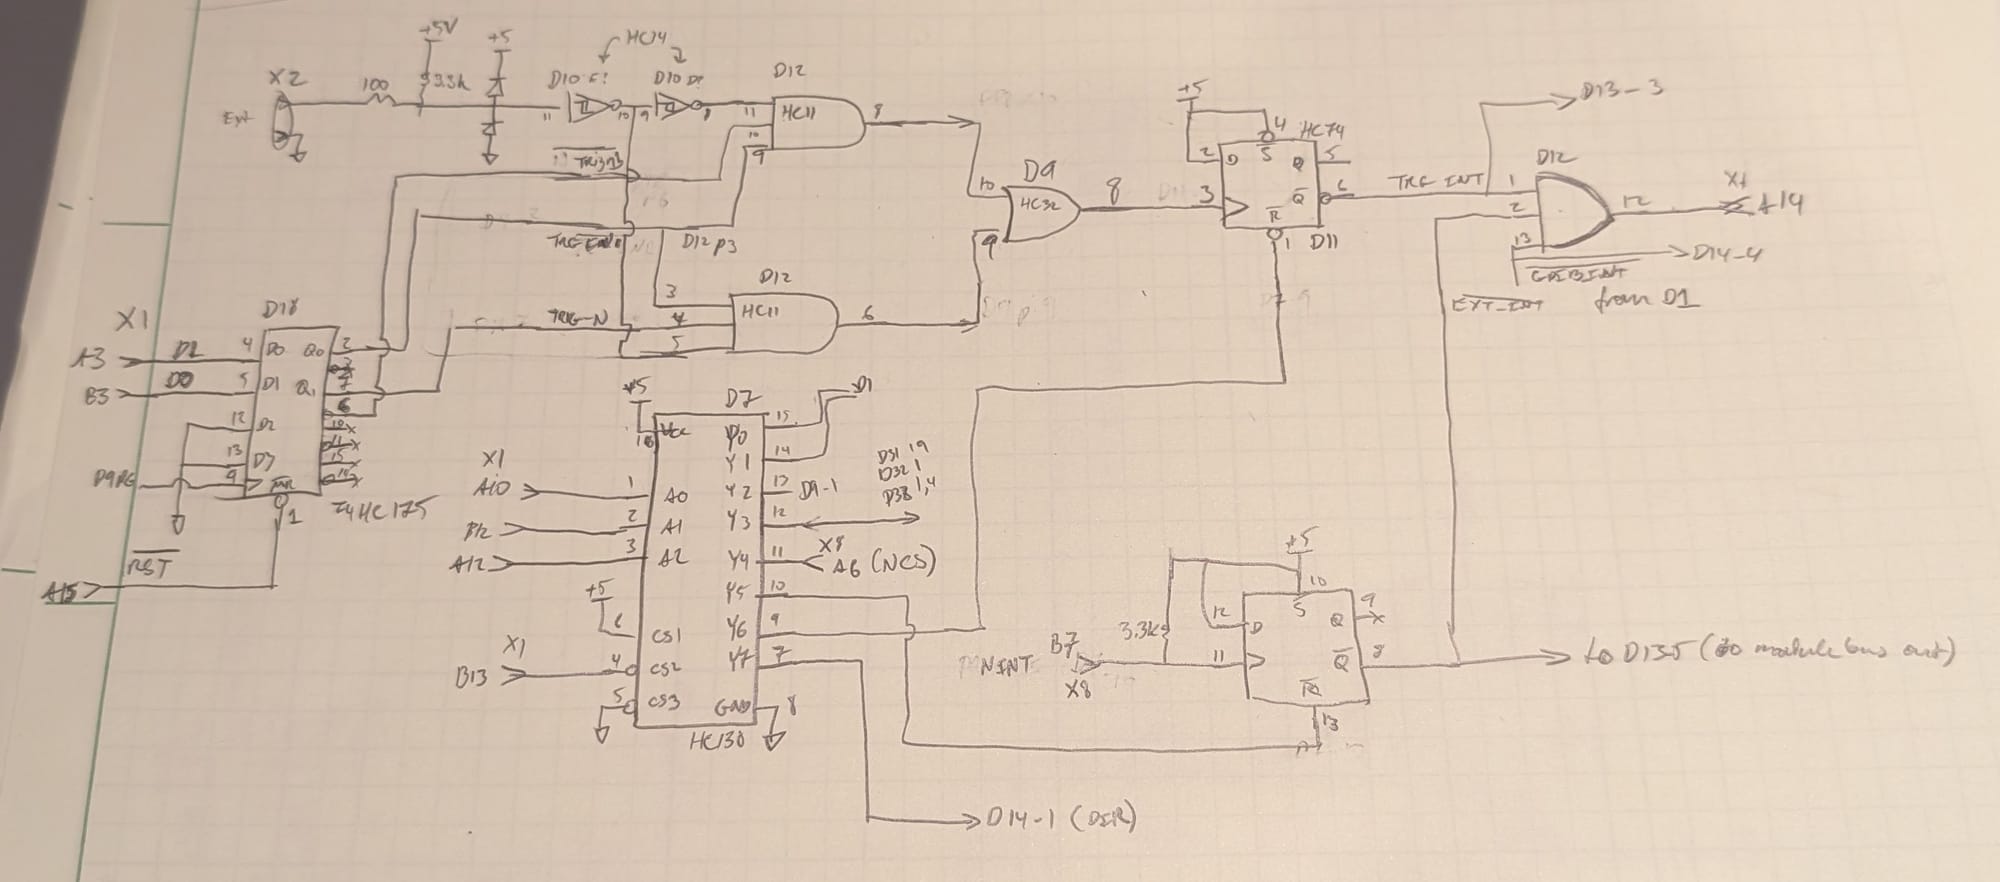 +5V
+5
HC14
X2
100
3.3k
D12
Ext
11
10
9
8
11
10
9
HC11
8
+5
4
HC74
D13-3
2
D
S
Q
5
D9
10
HC32
9
8
3
Q
6
TRG INT
1
2
13
D12
12
X1
A14
R
1
D11
D14-4
EXT-INT
from D1
D12 p3
D12
3
4
5
HC11
6
TRIG-N
X1
D18
A3
D1
4
D0
Q0
2
B3
D0
5
D1
Q1
7
6
12
D2
13
D3
9
MR
1
74HC175
RST
A15
+5
D7
D1
16
Vcc
Y0
15
Y1
14
X1
A10
1
A0
Y2
13
D9-1
D31 19
D32 1
D38 1,4
B12
2
A1
Y3
12
A12
3
A2
Y4
11
X8
A6 (NCS)
+5
6
CS1
Y5
10
Y6
9
X1
B13
4
CS2
Y7
7
5
CS3
GND
8
HC130
+5
10
12
D
S
Q
9
3.3k
B7
NINT
X8
11
Q
8
R
13
to D13-5 (to module bus out)
D14-1 (DIR)